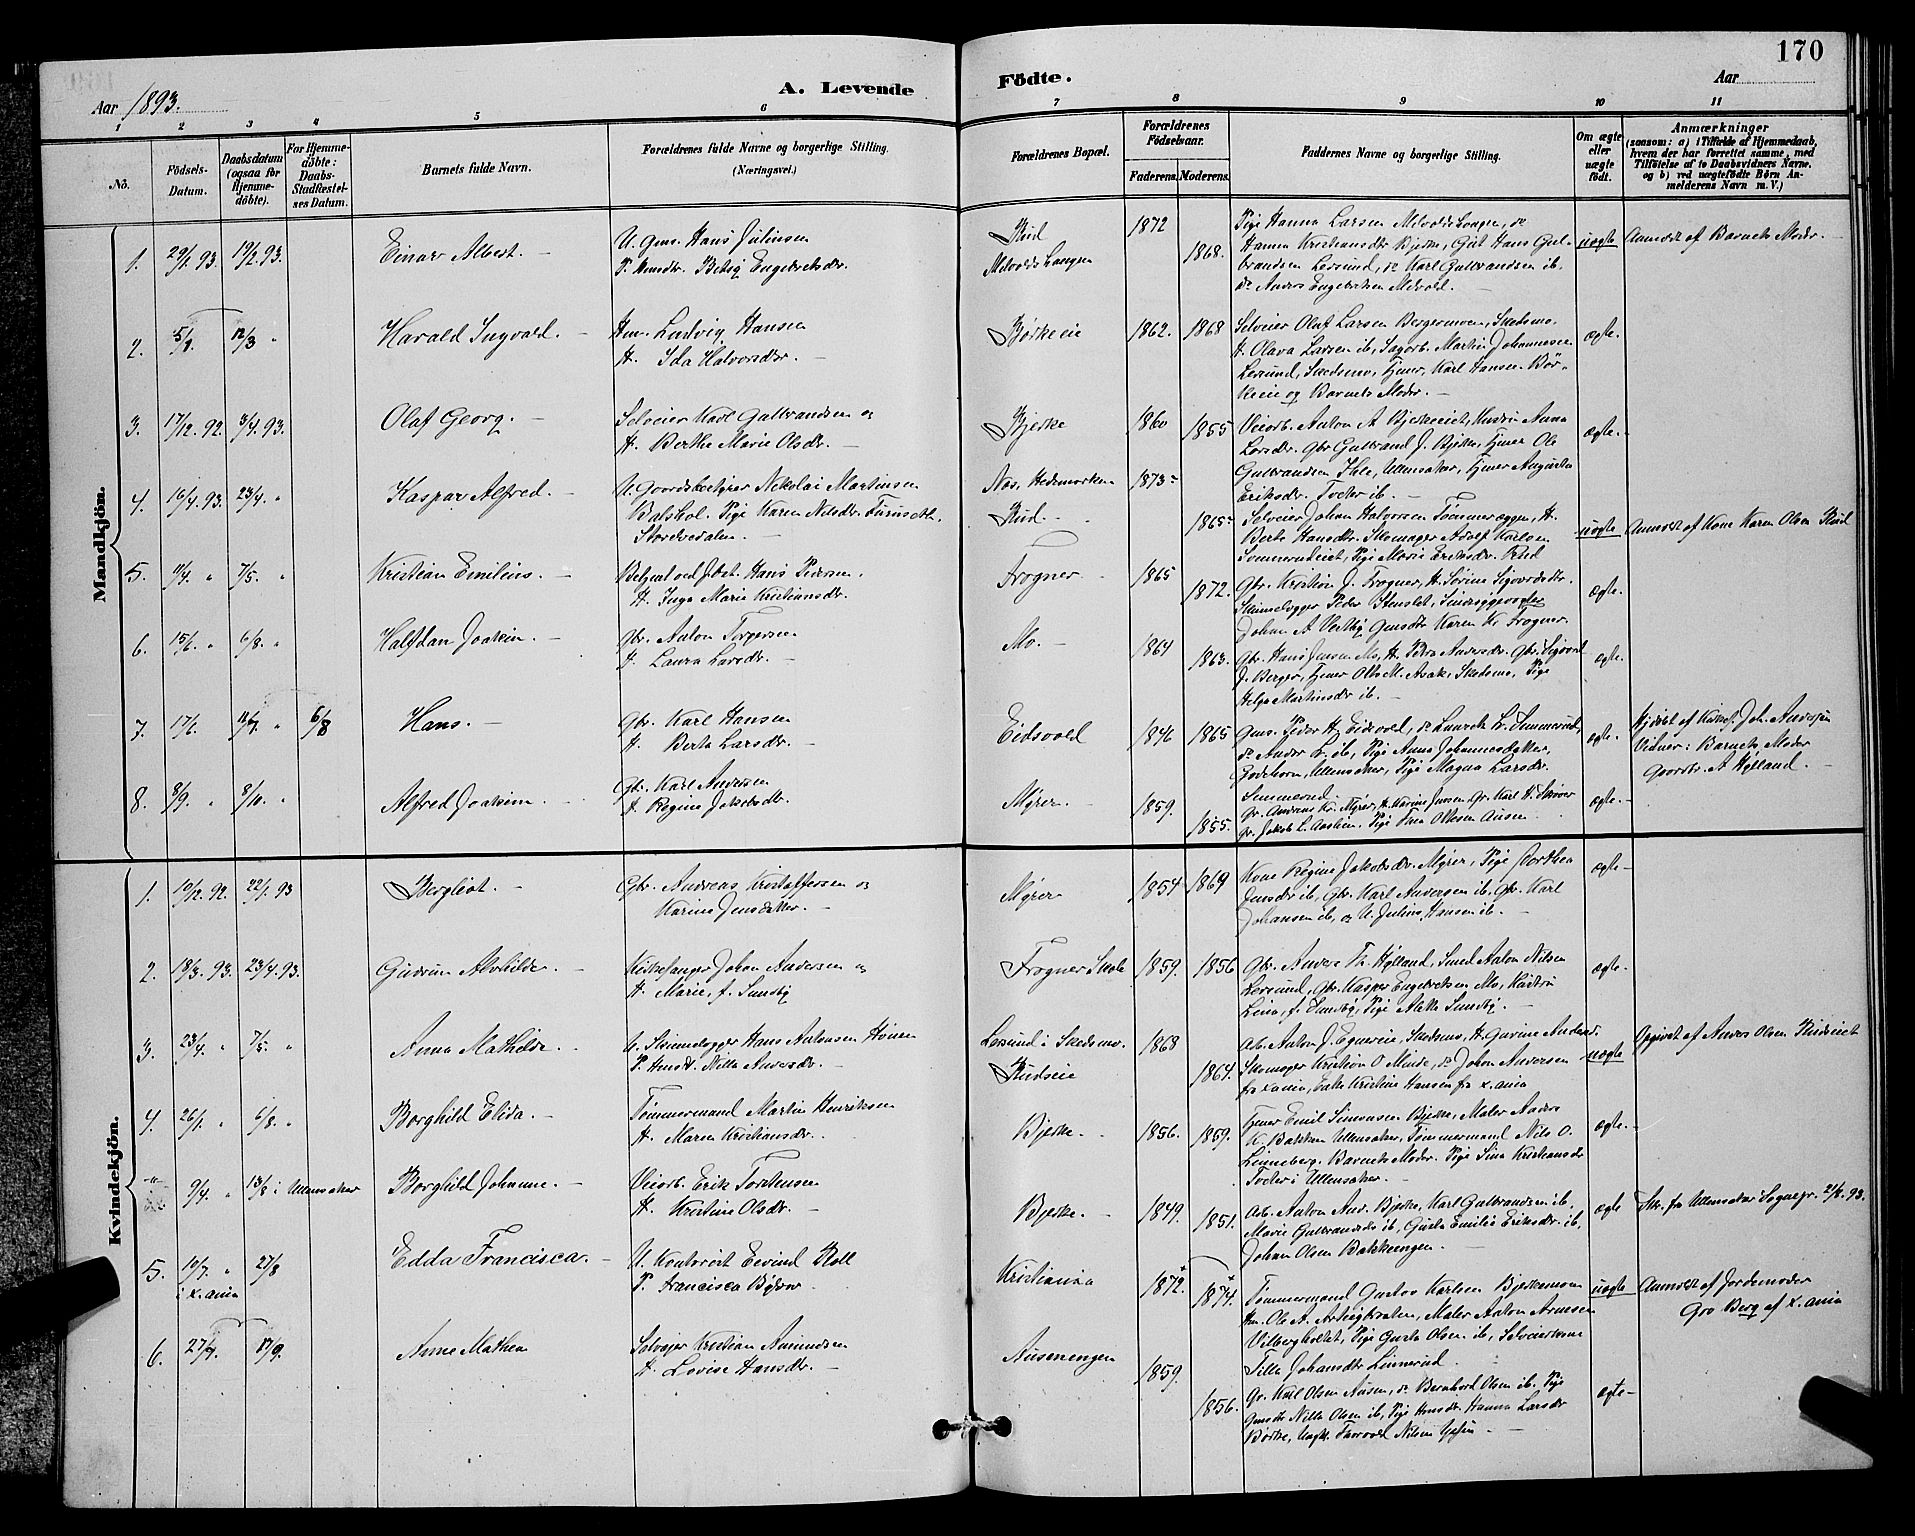 170
Aar 1893.
A. Levende
Födte.
Aar
1 2 3 4 5 6 7 8 9 10 11
No.
Födsels-
Datum.
Daabsdatum
(ogsaa for
Hjemme-
döbte).
For Hjemme-
döbte:
Daabs-
Stadfæstel-
ses Datum.
Barnets fulde Navn.
Forældrenes fulde Navne og borgerlige Stilling.
(Næringsvei.)
Forældrenes Bopæl.
Forældrenes
Födselsaar.
Faderens. Moderens.
Faddernes Navne og borgerlige Stilling.
Om ægte
eller
uægte
födt.
Anmærkninger
(saasom: a) i Tilfælde af Hjemmedaab,
hvem der har forrettet samme, med
Tilföielse af to Daabsvidners Navne.
og b) ved uægtefödte Börn An-
melderens Navn m. V.)
Mandkjön.
1. 29/1. 93. 19/2. 93.
Einar Albert. —
U. Gms. Hans Julinsen
P. Husdtr. Betsy Engebretsdr.
Rud
1872
1868.
Pige Hanna Larsen
Hanna Kristiansdtr Bjerke, Gut Hans Gul-
brandsen Lersund, do Karl Gulbrandsen ib.
do Anders Engebretsen
uægte
Anmeldt af Barnets Moder.
2. 5/1. 12/3 "
Harald Ingvald. —
Hm. Ludvig Hansen
H. Ida Halvorsdr. —
Børkeeie
1862. 1868
Selveier Olaf Larsen Bergermoen, Skedsmo,
H. Olava Larsen ib, Sagarb. Martin Johannesen
Lersund, Skedsmo, Hmr. Karl Hansen Bør-
keeie og Barnets Moder. —
ægte.
3. 17/12. 92. 3/4. 93.
Olaf Georg. —
Selveier Karl Gulbrandsen og
H. Berthe Marie Olsdr. —
Bjerke
1860 1855
Veiarb. Anton A Bjerkeeiet, Hustru Anna
Larsdr. Gbr Gulbrand J. Bjerke, Hmr Ole
Gulbrandsen Ihle, Ullensaker, Hmr Augusta
Eriksdr. Tveter ib. —
ægte.
4. 16/4. 93. 23/4. "
Kaspar Alfred. —
U. Gaardsbestyrer Nikolai Martinsen
Pige Karen Nilsdr. Furuseth
—
Nes. Hedemarken
Rud. —
1873
1865
Selveier Johan Halvorsen H.
Berte Hansdtr. Skomager Adolf Karlsen
Pige Marie Eriksdr. Rud
uægte
Anmeldt af Kone Karen Olsen Rud
5. 11/4. " 7/5. "
Kristian Emilius. —
Hans Pedersen.
H. Inga Marie Kristiansdr.
Frogner —
1865
1872.
Gbr. Kristian J. Frogner, H. Sørine Sigvardsdtr.
Skinnelægger Peder
Johan A Gmsdtr Karen K. Frogner.
ægte.
6. 15/6. " 6/8. "
Halfdan Joakim. —
Gbr. Anton Torgersen
H. Laura Larsdr. —
Mo. —
1864
1863.
Gbr. Hans Jensen Mo, H. Petra Andersdr. Gbr. Sigvart
J. Berger, Hmr Otto M. Avak, Skedsmo, Pige
Helga Martinsdr ib. —
ægte.
7. 17/6. 11/7. " 6/8
Hans. —
Gbr. Karl Hansen
H. Berta Larsdr. —
Eidsvold
1846 1865
Gms. Peder H. Eidsvold, do Laurits Lr. Simmerud,
do Ander L. ib, Pige Anna Johannesdatter,
Ullensaker, Pige Magna Larsdr.
Simmerud.
ægte.
Hjdøbt af Kirkes. Joh. Andersen
Vidner: Barnets Moder
Gaardbr. A Hylland. —
8. 8/9. " 8/10. "
Alfred Joakim. —
Gbr. Karl Andersen
H. Regine Jakobsdr.
Myrer. —
1859.
1855.
Gr. Andreas Kr. Myrer, H. Karine Jensen, Gr. Karl H.
Gr. Jakob L. Pige Ottesen Ausen
ægte. —
Kvindekjön.
1. 10/12. 92. 22/1. 93
Bergliot. —
Gbr. Andreas Kristoffersen og
Karine Jensdatter. —
Myrer
1854 1869
Kone Regine Jakobsdr. Myrer, Pige Dorthea
Jensdr ib, Gbr. Karl Andersen ib, Gbr. Karl
Johansen ib, og U. Julius Hansen ib. —
ægte —
2. 18/3. 93. 23/4. 93.
Gudrun Alvhilde. —
Kirkesanger Johan Andersen og
H. Marie, f. Sundby
Frogner Skole
1859. 1856
Gbr. Anders Th. Hylland, Smed Anton Nilsen
Lersund, Gbr. Kasper Engebretsen Mo, Hustru
Lina, f. Sundby, Pige Sundby. —
ægte. —
3. 23/4. " 7/5. "
Anna Mathilde. —
U. Skinnelægger Hans Antonsen
P. Husdt. Nilla Andersdr. —
Lersund i Skedsmo.
Rudseie
1868
1864.
Arb. Anton J. Skedsmo, H. Gurine Andersd.
Skomager Kristian O Minde, do Johan Andersen
fra X.ania, Enke Kristine Hansen fra X.ania
uægte
Opgivet af Anders Olsen Rudseiet
4. 26/1. " 6/8. "
Borghild Elida. —
Tømmermand Martin Henriksen
H. Maren Kristiansdr.
Bjerke. —
1856. 1859.
Hmr Emil Simonsen Bjerke, Maler Anders
K. Bakken Ullensaker, Tømmermand Nils O.
Linneberg, Barnets Moder. Pige Sina Kristiansdr
Tveter i Ullensaker. —
ægte. —
9/4. " 13/8 i Ullensaker
Borghild Johanne. —
Veiarb. Erik Torstensen
H. Kristine Olsdr. —
Bjerke. —
1849. 1851.
Arb. Anton And. Bjerke, Karl Gulbrandsen ib.
Marie Gulbrandsds ib, Gusta Emilie Eriksdr ib,
Johan Olsen Bakkeengen. —
ægte
Atte. fra Ullensaker Sognepr. 2/8. 93.
5. 10/7. " 27/8
i X.ania
Edda Francisca. —
U. Kontorist Eivind Roll
P. Francisca
Kristiania
1872. 1874.
Tømmermand Gustav Karlsen Bjerkemoen
Hm. Ole A. Maler Anton Arnesen
Pige Gusta Olsen ib, Selveierkone
Tilla Johansdtr Linnerud.
uægte
Anmeldt af Jordemoder
Gro Berg af X.ania
6. 27/7. 17/9.
Anne Mathea
Selveier Kristian Amundsen
H. Lovise Hansdr. —
Ausenengen
1859.
1856.
Gr. Karl Olsen Ausen, do Bernhard Olsen ib. Pige
Gmsdtr Nilla Olsen ib, Pige Hmsdr. Hanna Larsdr
Børke, Thorvald Nilsen —
ægte —